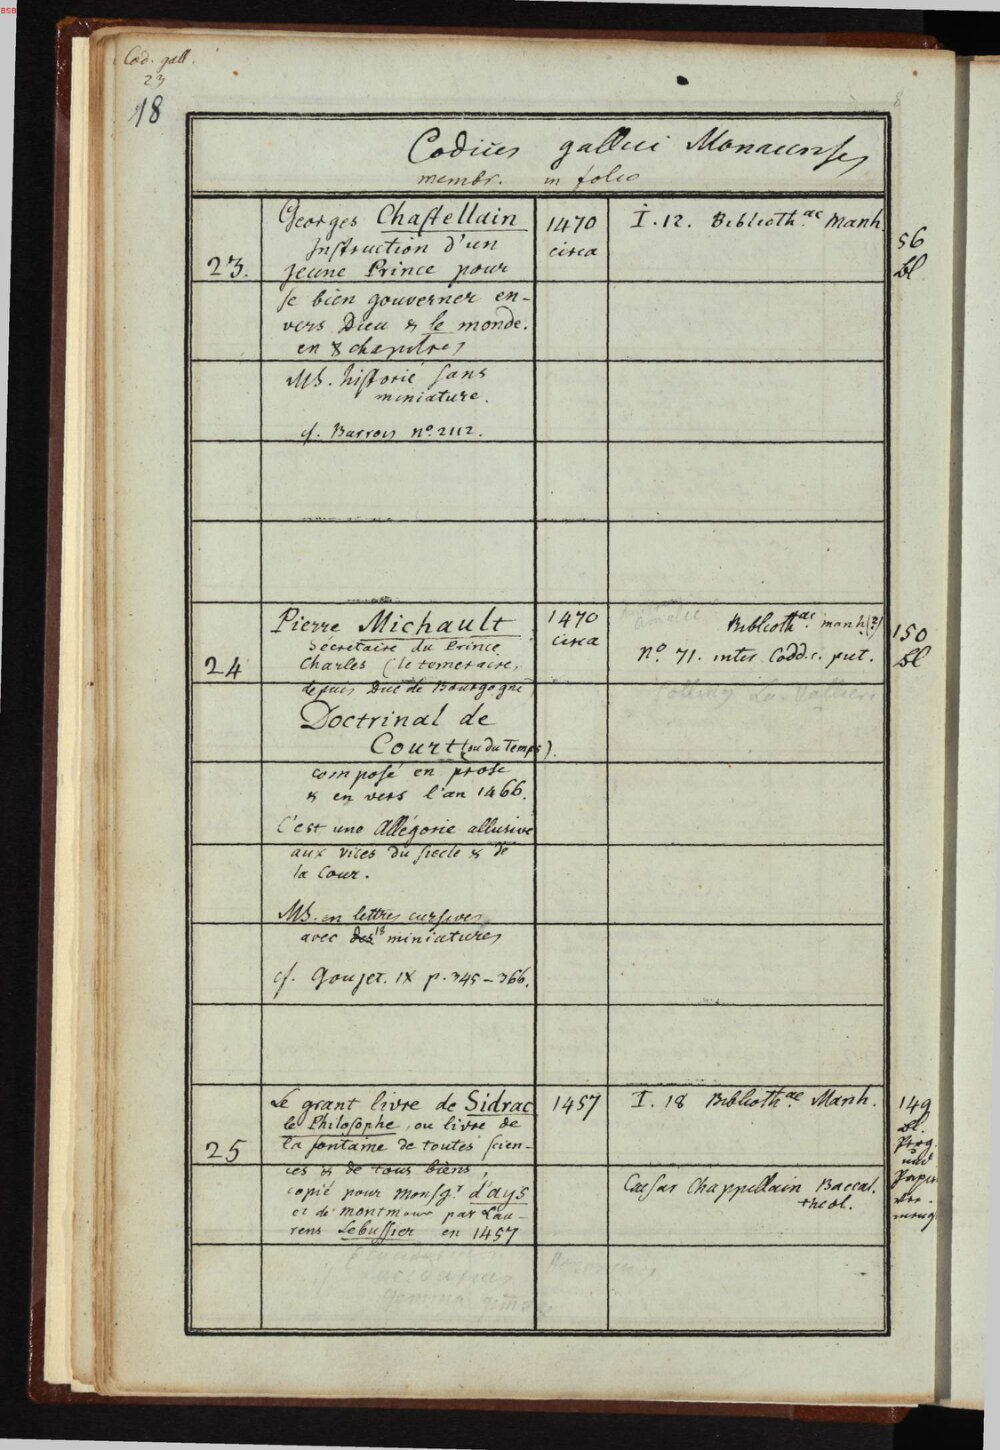 BSB
Cod. gall.
23
18
Codices gallici Monacenses
membr. in folio
23.
Georges Chastellain
Instruction d'un
jeune Prince pour
se bien gouverner en-
vers Dieu & le monde.
en 8 chapitres
MS. historié sans
miniature.
cf. Barrois no. 2112.
1470
circa
I. 12. Biblioth.ae Manh.
56
Bl
24
Pierre Michault
Sécretaire du Prince
Charles (le temeraire,
depuis Duc de Bourgogne
Doctrinal de
Court (ou du Temps).
composé en prose
& en vers l'an 1466.
C'est une Allégorie allusive
aux vices du siecle & de
la Cour.
MS. en lettres cursives
avec des 18 miniatures
cf. Goujet. IX p. 345-366.
1470
circa
Biblioth.ae manh(?)
No. 71. inter Codd. c. pict.
La Valliere
150
Bl
25
Le grant livre de Sidrac
le Philosophe, ou livre de
la fontaine de toutes scien-
ces & de tous biens,
copié pour monsgr. d'ays
et de montmaur par Lau-
rens Lebussier en 1457
1457
I. 18 Biblioth.ae Manh.
Caesar Chappellain Baccal.
theol.
149
Bl.
Perg.
und
Papier
ver-
meng